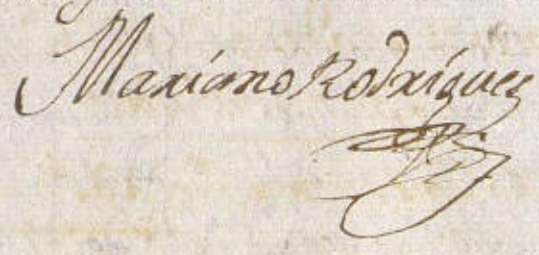 Mariano Rodriguez